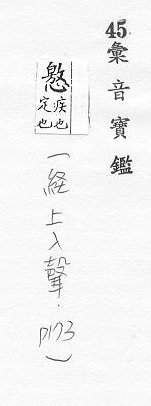 45彙音寶鑑
疾也
定也
(経上入聲. P173)